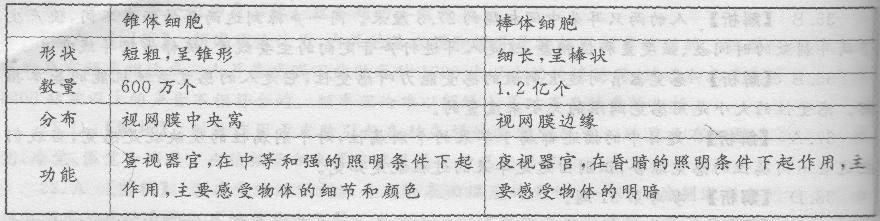 锥体细胞 棒体细胞
形状 短粗,呈锥形 细长,呈棒状
数量 600万个 1.2亿个
分布 视网膜中央窝 视网膜边缘
功能 昼视器官,在中等和强的照明条件下起 夜视器官,在昏暗的照明条件下起作用,主
作用,主要感受物体的细节和颜色 要感受物体的明暗